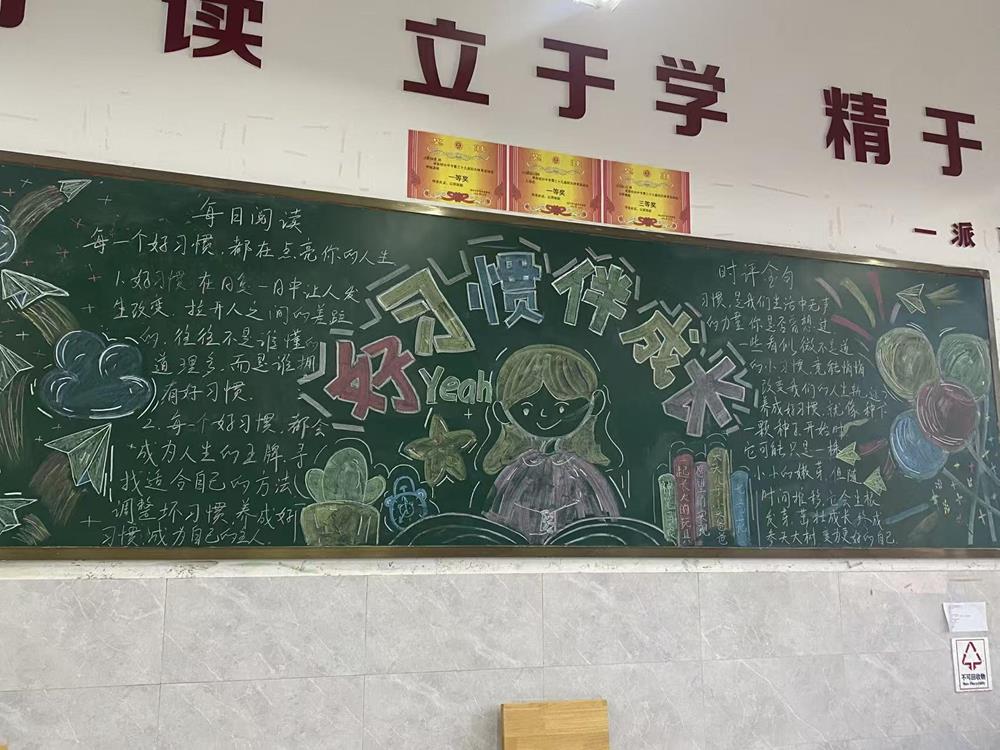 读 立于学 精于
一派
一等奖
一等奖
三等奖
每日阅读
每一个好习惯,都在点亮你的人生
1.好习惯在日复一日中让人发
生改变,拉开人之间的差距
的,往往不是谁懂的
道理多,而是谁拥
有好习惯
2.每一个好习惯,都会
成为人生的王牌,寻
找适合自己的方法
调整坏习惯,养成好
习惯,成为自己的主人.
好习惯伴成长
Yeah
起长大的玩具
时评金句
习惯,是我们生活中无声
的力量,你是否有想过
一些看似微不足道
的小习惯,竟能悄悄
改变我们的人生轨迹?
养成好习惯,就像种下
一颗种子,开始时
它可能只是一株
小小的嫩芽,但随
时间推移,它会生根
发芽,茁壮成长,终成
参天大树,变为更好的自己.
不可回收物